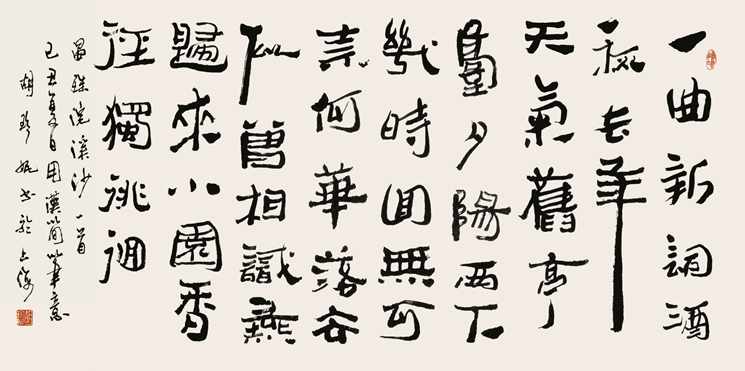 一曲新詞酒
一杯去年
天氣舊亭
臺夕陽西下
幾時回無可
柰何華落去
似曾相識燕
歸來小園香
徑獨徘徊
晏殊浣溪沙一首
己丑夏日用漢簡筆意
胡书於上海